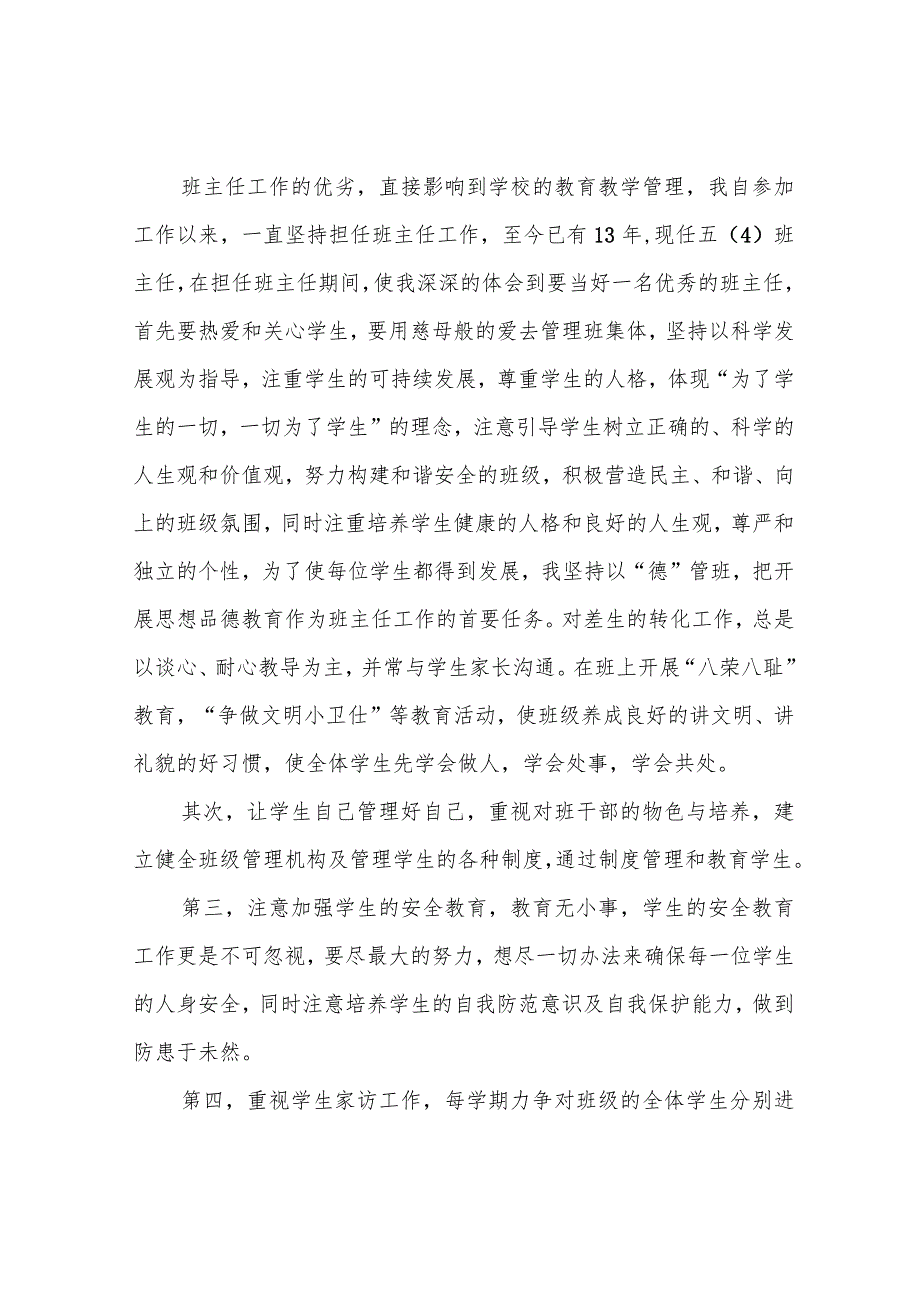 班主任工作的优劣，直接影响到学校的教育教学管理，我自参加
工作以来，一直坚持担任班主任工作，至今已有 13 年,现任五（4）班
主任,在担任班主任期间,使我深深的体会到要当好一名优秀的班主任，
首先要热爱和关心学生，要用慈母般的爱去管理班集体，坚持以科学发
展观为指导，注重学生的可持续发展，尊重学生的人格，体现“为了学
生的一切，一切为了学生”的理念，注意引导学生树立正确的、科学的
人生观和价值观，努力构建和谐安全的班级，积极营造民主、和谐、向
上的班级氛围，同时注重培养学生健康的人格和良好的人生观，尊严和
独立的个性，为了使每位学生都得到发展，我坚持以“德”管班，把开
展思想品德教育作为班主任工作的首要任务。对差生的转化工作，总是
以谈心、耐心教导为主，并常与学生家长沟通。在班上开展“八荣八耻”
教育，“争做文明小卫仕”等教育活动，使班级养成良好的讲文明、讲
礼貌的好习惯，使全体学生先学会做人，学会处事，学会共处。
其次，让学生自己管理好自己，重视对班干部的物色与培养，建
立健全班级管理机构及管理学生的各种制度,通过制度管理和教育学生。
第三，注意加强学生的安全教育，教育无小事，学生的安全教育
工作更是不可忽视，要尽最大的努力，想尽一切办法来确保每一位学生
的人身安全，同时注意培养学生的自我防范意识及自我保护能力，做到
防患于未然。
第四，重视学生家访工作，每学期力争对班级的全体学生分别进